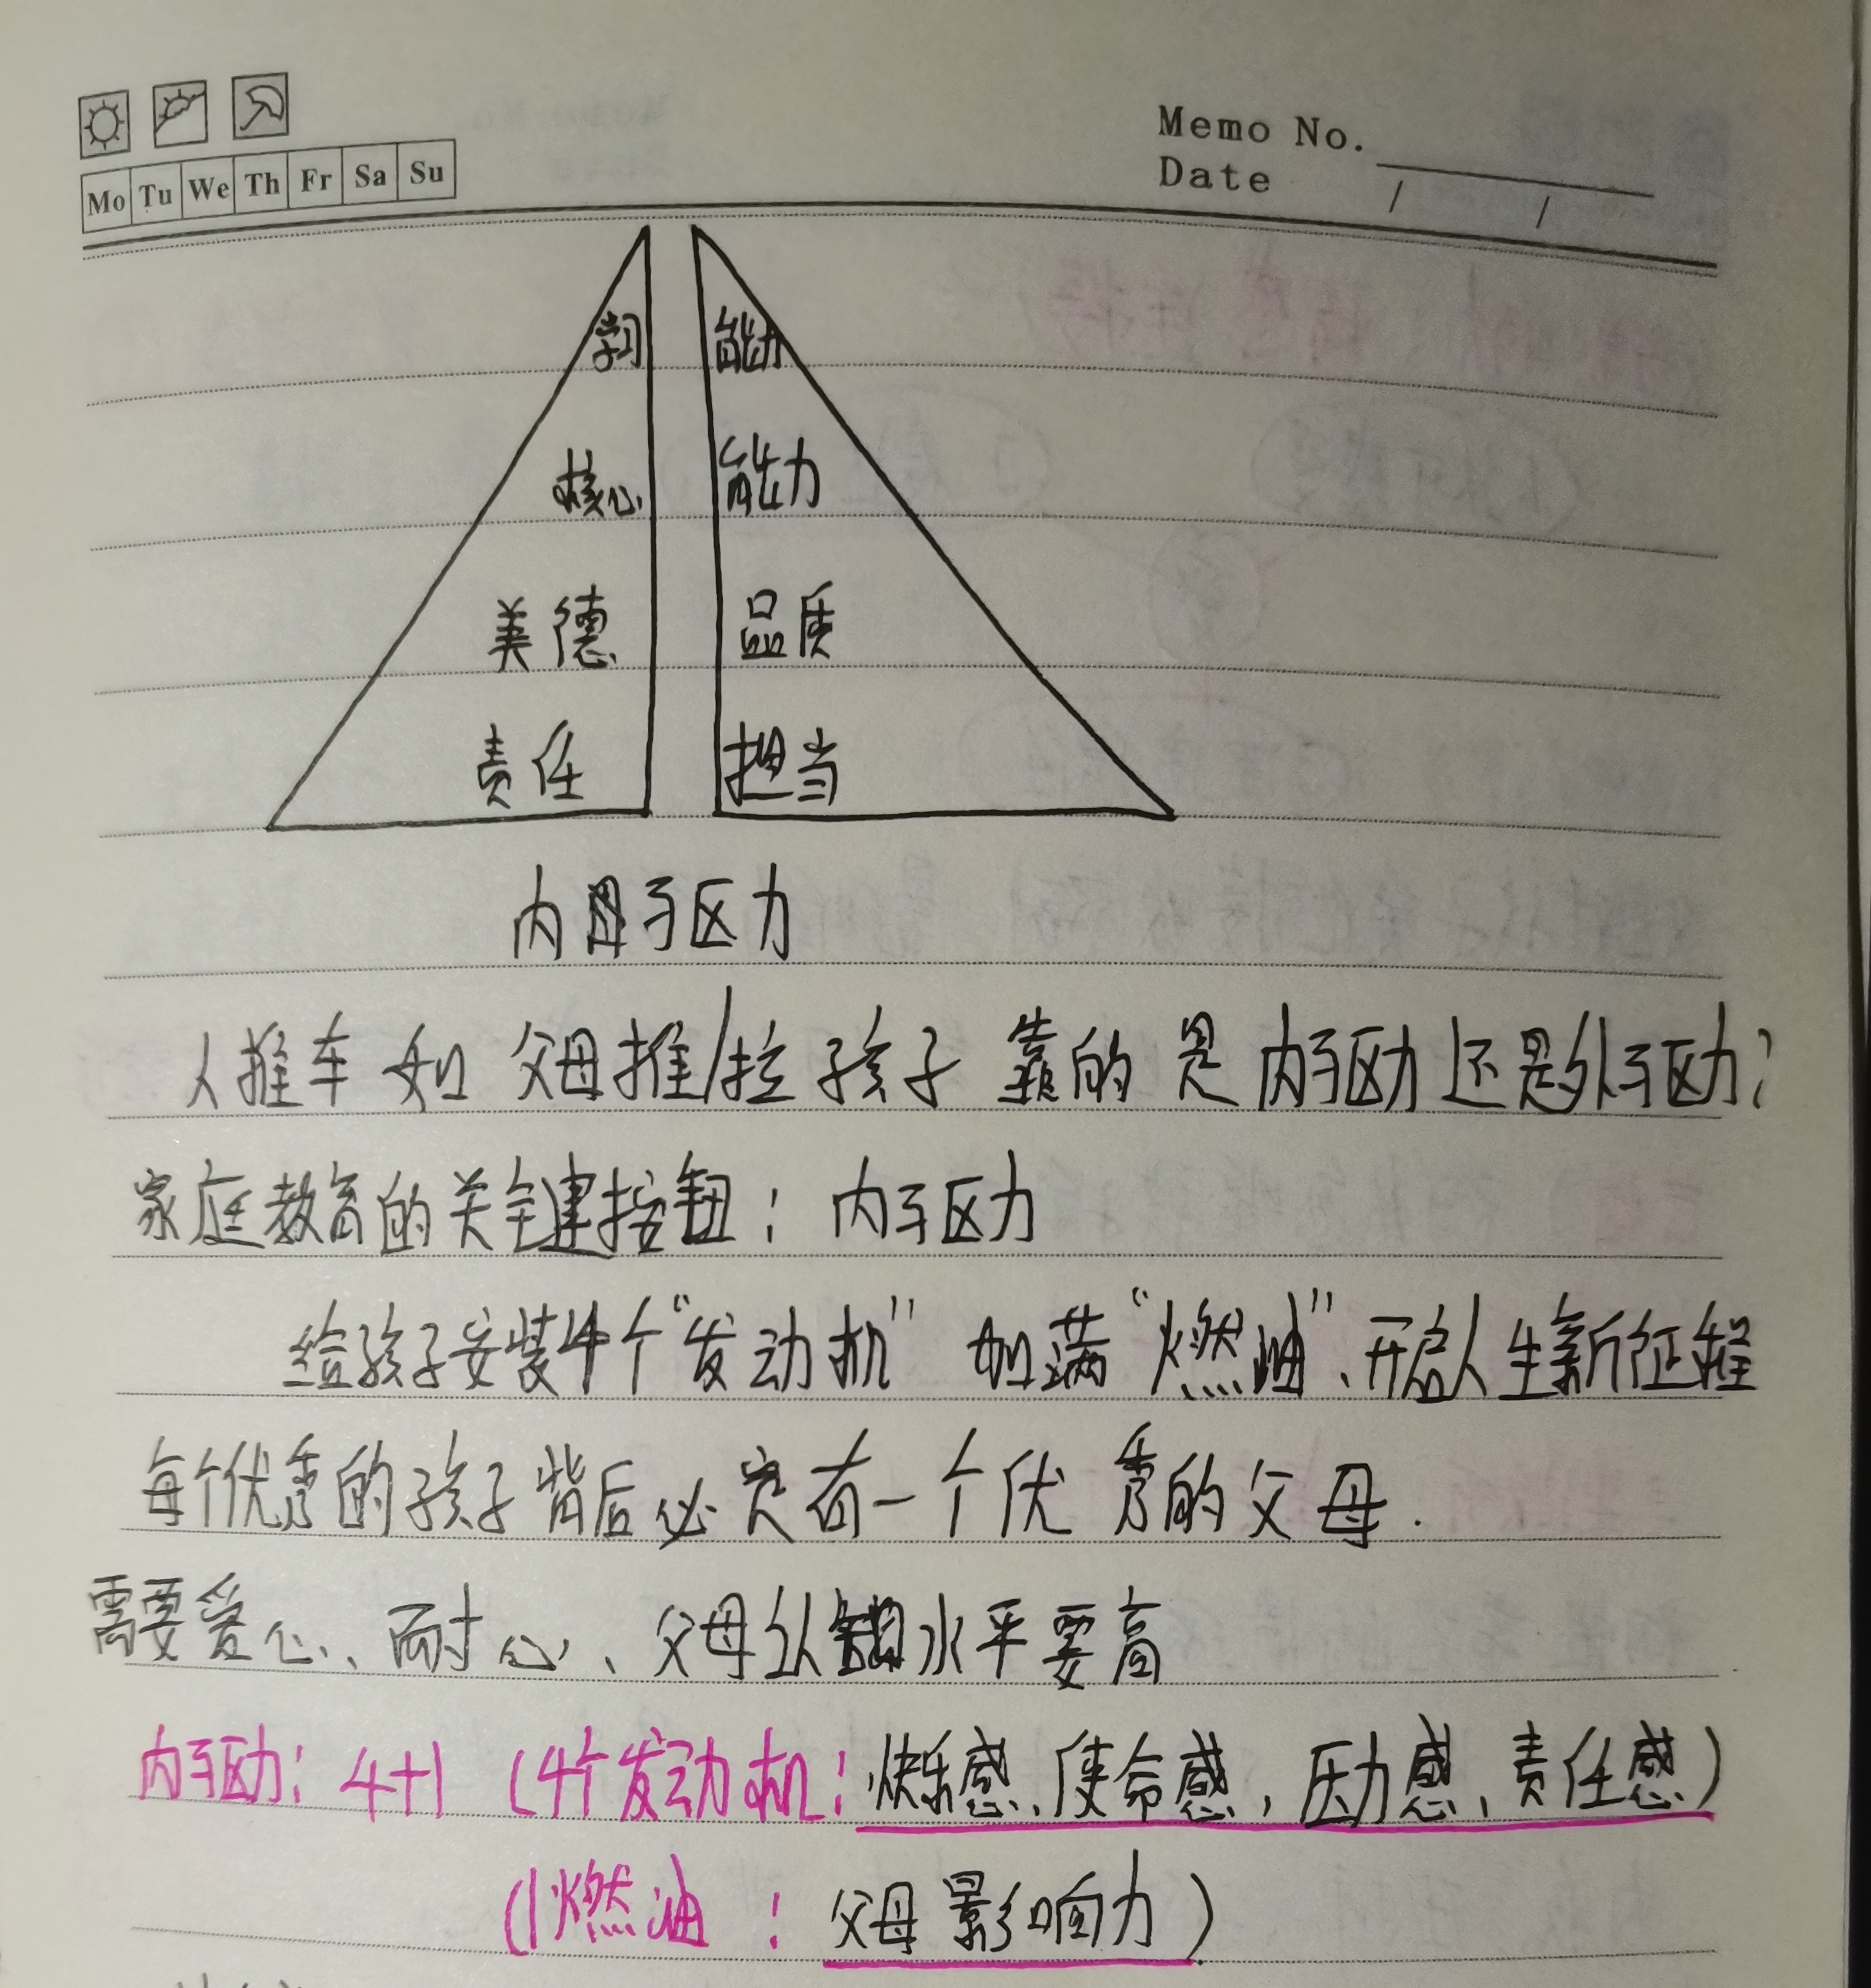 Memo No.
Mo Tu We Th Fr Sa Su
Date / /
学习 能力
核心 能力
美德 品质
责任 担当
内驱力
人推车 如 父母推/拉孩子 靠的是内驱力还是外驱力?
家庭教育的关键按钮: 内驱力
给孩子安装4个“发动机” 加满“燃油”、开启人生新征程
每个优秀的孩子背后必定有一个优秀的父母.
需要爱心、耐心、父母认知水平要高
内驱力: 4+1 (4个发动机: 快乐感、使命感, 压力感, 责任感)
(1燃油: 父母影响力)